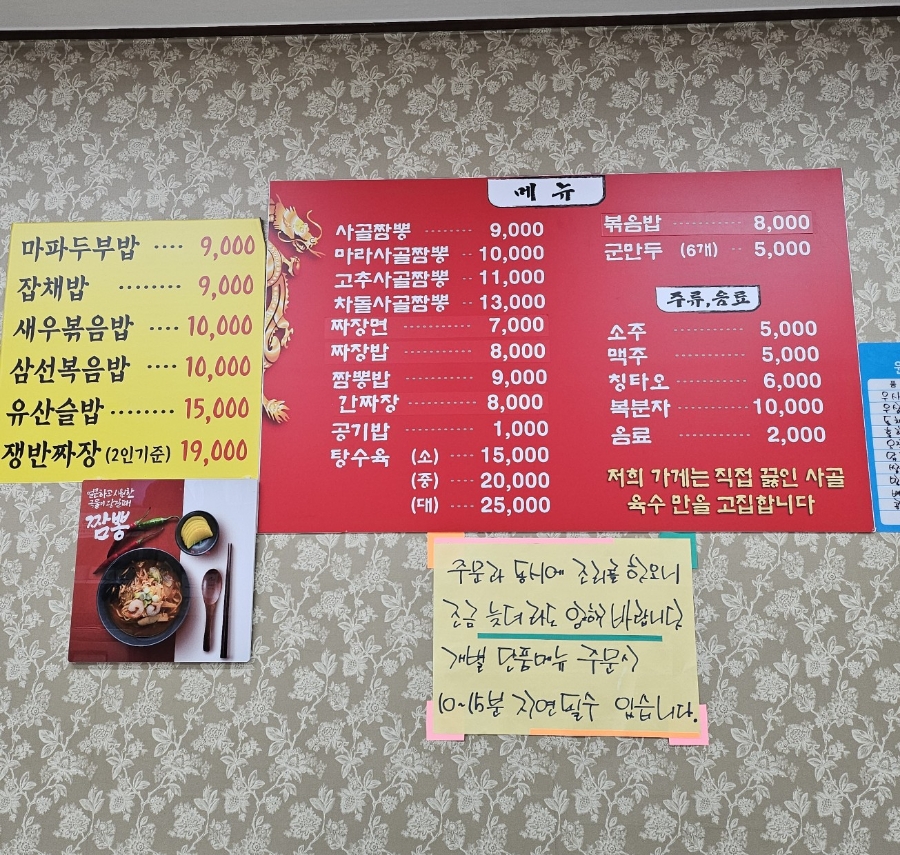 마파두부밥 ···· 9,000
잡채밥 ········ 9,000
새우볶음밥 ···· 10,000
삼선복음밥 ···· 10,000
유산슬밥 ········ 15,000
쟁반짜장 (2인기준) 19,000
짬뽕
메뉴
사골짬뽕 ········ 9,000
마라사골짬뽕 ·· 10,000
고추사골짬뽕 ·· 11,000
차돌사골짬뽕 ·· 13,000
짜장면 ············ 7,000
짜장밥 ············ 8,000
짬뽕밥 ············ 9,000
간짜장 ············ 8,000
공기밥 ············ 1,000
탕수육 (소) ···· 15,000
(중) ···· 20,000
(대) ···· 25,000
볶음밥 ············ 8,000
군만두 (6개) ···· 5,000
주류,음료
소주 ············ 5,000
맥주 ············ 5,000
칭타오 ·········· 6,000
복분자 ········ 10,000
음료 ············ 2,000
저희 가게는 직접 끓인 사골
육수 만을 고집합니다
주문과 동시에 조리를 하오니
조금 늦더라도 양해 바랍니다
개별 단품메뉴 주문시
10~15분 지연될수 있습니다.